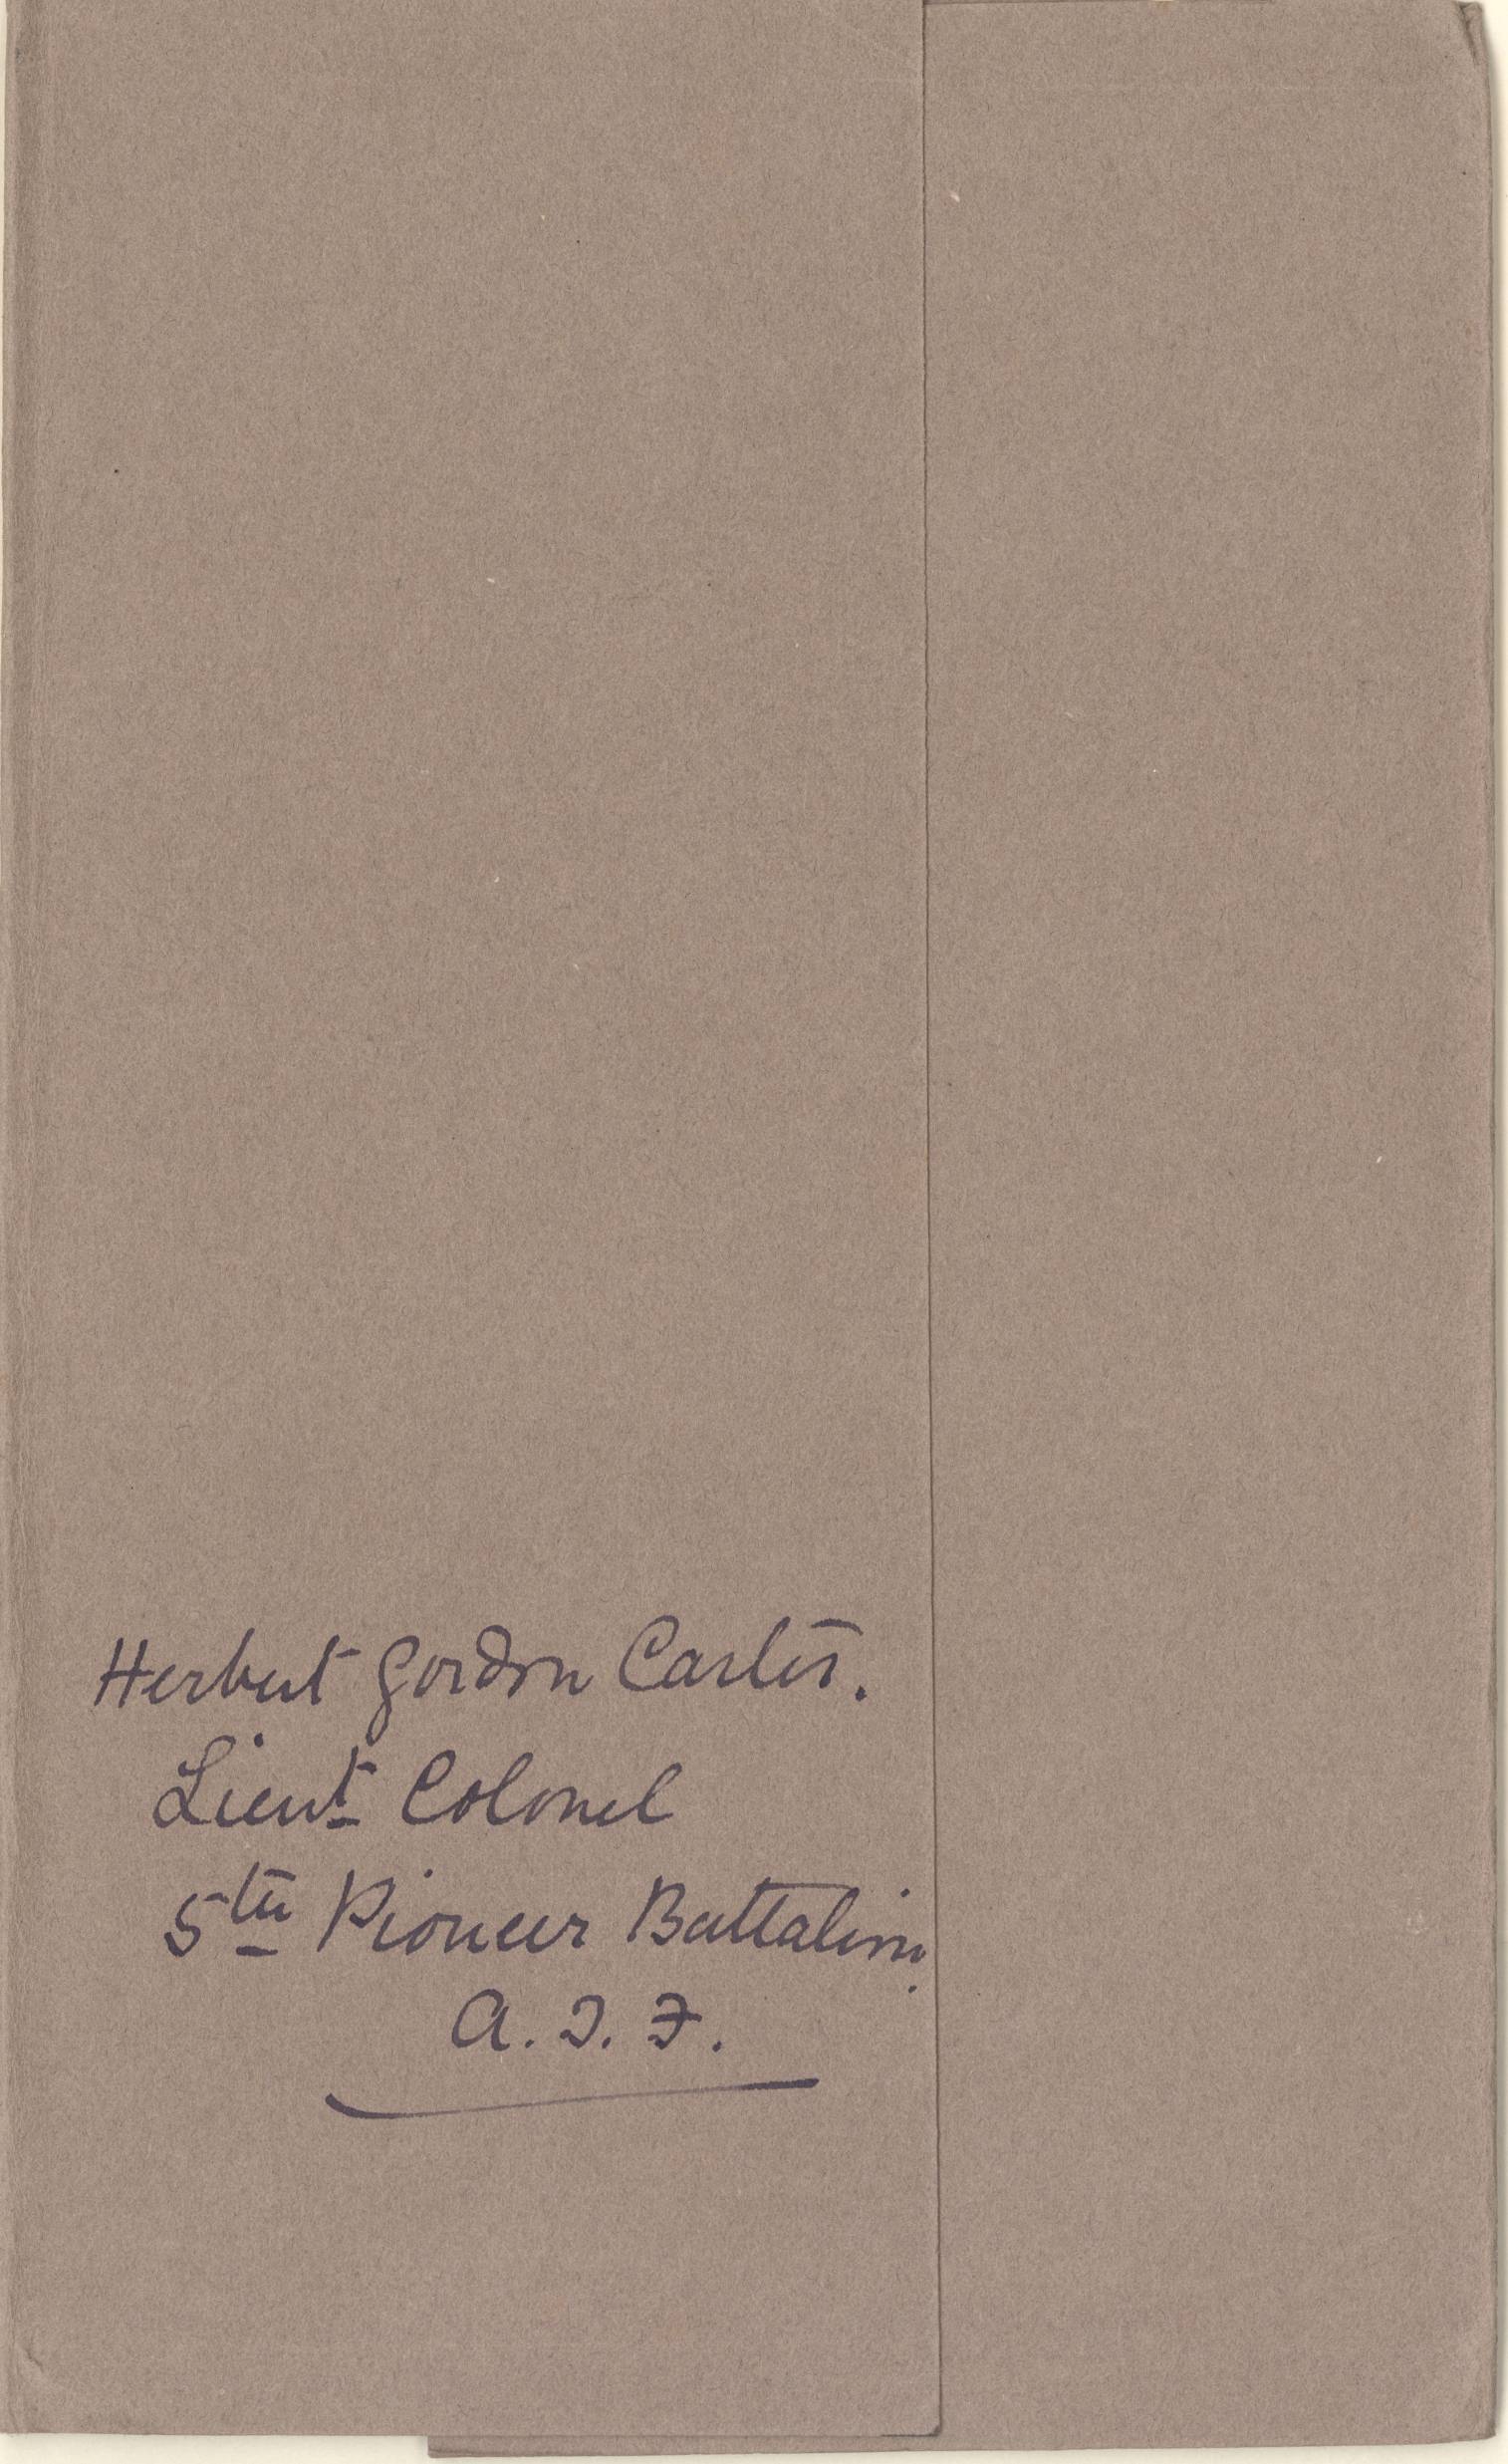 Herbert Gordon Carter.
Lieut Colonel
5th Pioneer Battalion.
A. I. F.